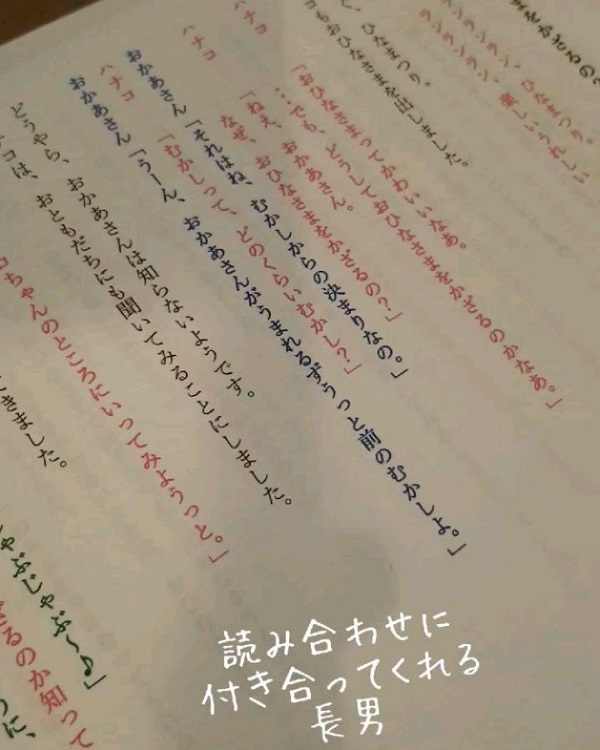 をかざるの?
ランランラン、ひなまつり。
ランランラン、楽しいうれしい
ひなまつり。
コもおひなさまを出しました。
ハナコ 「おひなさまってかわいいなあ。
…でも、どうしておひなさまをかざるのかなあ。」
ハナコ 「ねえ、おかあさん。
なぜ、おひなさまをかざるの？」
おかあさん 「それはね、むかしからの決まりなの。」
ハナコ 「むかしって、どのくらいむかし？」
おかあさん 「うーん、おかあさんがうまれるずうっと前のむかしよ。」
どうやら、おかあさんは知らないようです。
コは、おともだちにも聞いてみることにしました。
ちゃんのところにいってみようっと。」
きました。
ゃぶじゃぶ〜♪」
るのか知って
に、
読み合わせに
付き合ってくれる
長男